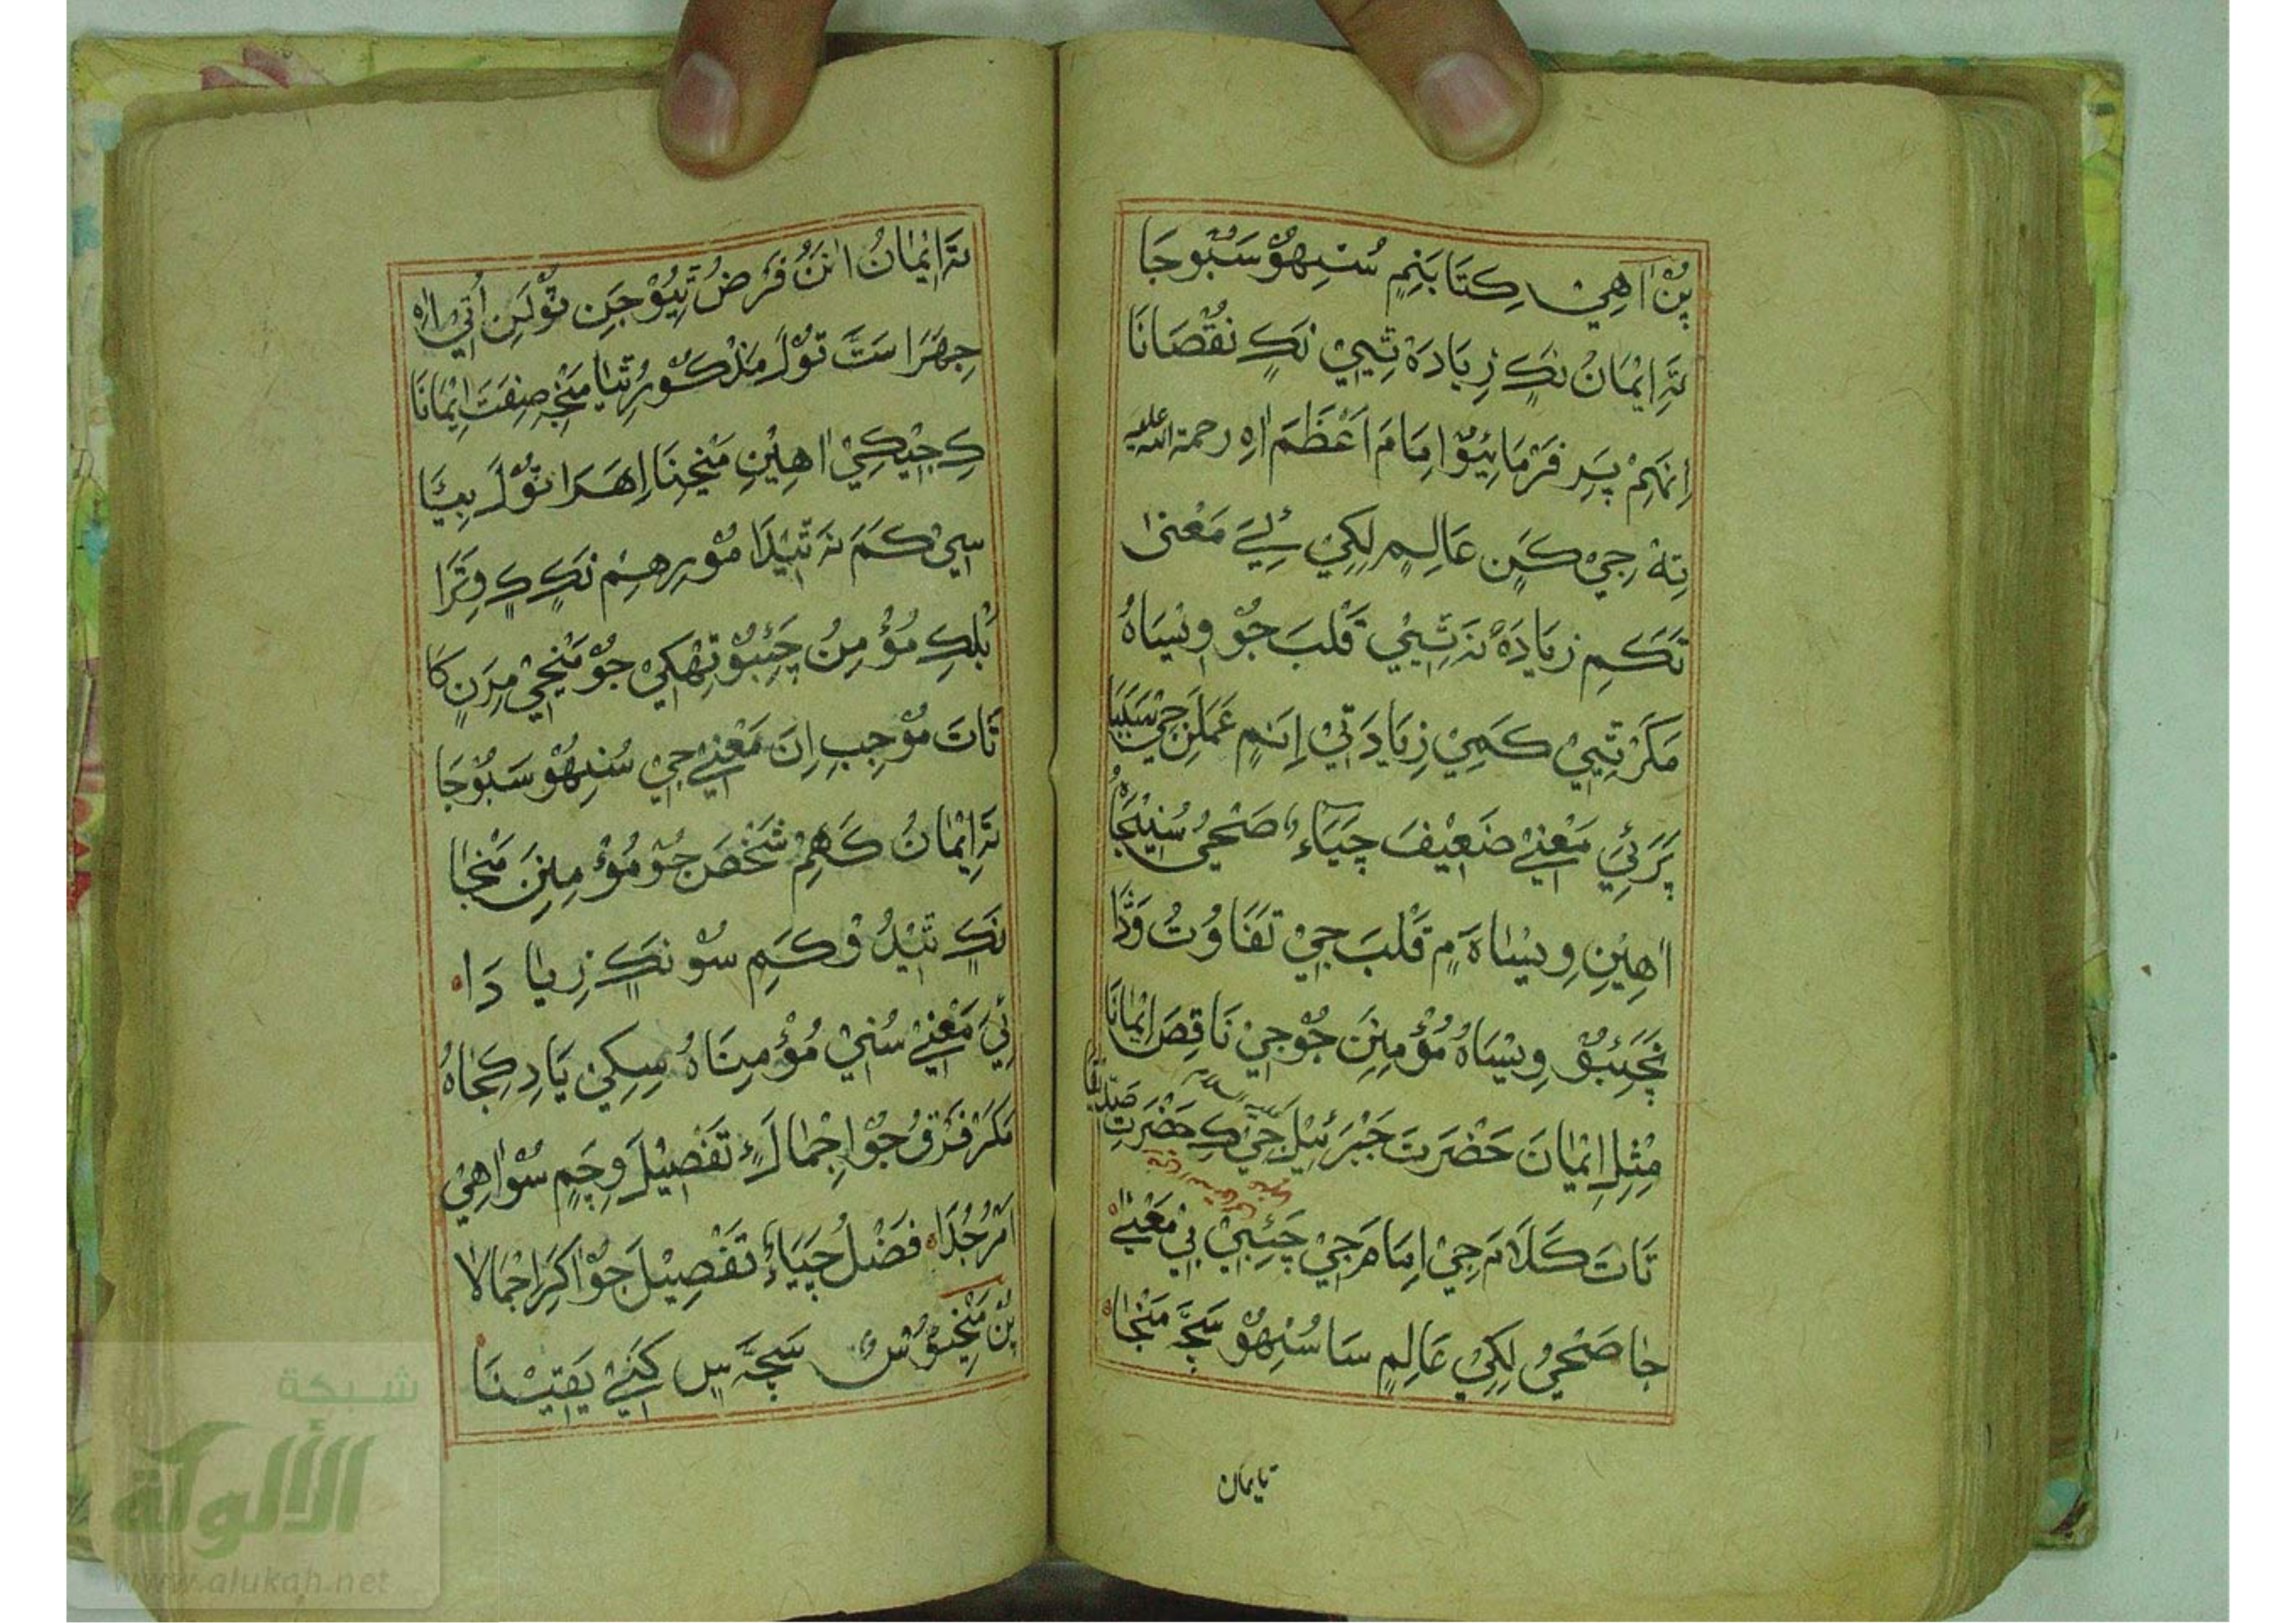 پُنْ آهِيْ ڪِتَابَنِمِ سُنِهوُ سَبُوجَا
تَہ اِیْمَانُ نَڪٍ زِيَادَہ ثِيِيْ نَڪٍ نُقْصَانَا
اِنَہِمْ پَرِ فَرْمَائِيُوْ اِمَامَ اَعْظَمَ اہِ رحمة الله عليه
تِہْ جِيْ ڪَنِ عَالِمِ لِکِيْ مَعْنیٰ
تَڪَمِ زِيَادَہ نَہ ثِيِيْ قَلْبَ جُوْ وِيسَاہُ
مَڪَرْ ثِيِيْ ڪَمِيْ زِيَادَتِيْ اِنَمِ عَمَلَنِ جِيْ
پَرَئِيْ مَعْنیٰ ضَعِيْفَ چَيَاءِ صَحْيُ سُنِيْجَا
اٰهِيْنِ وِيسَاہَ مٍ قَلْبَ جِيْ تَفَاوُتُ وَڈَا
نَچَئِبُوْ وِيْسَاہُ مُؤْمِنَنِ جُوْ جِيْ نَاقِصَ اِيْمَانَا
مِثْلِ اِيْمَانَ حَضْرَتَ جَبْرَئِيْلَ جِيْ ڪِ حَضْرَتِ صِدِّيقَا
تَاتَ ڪَلَامَ جِيْ اِمَامَ جِيْ چَئِبِيْ بِيْ مَعْنیٰ
جا صَحْيُ لِکِيْ عَالِمِ سَا سُنِهوُ سَچَّہ مَنْجَا
تایمان
تَہ اِيْمَانُ اٰنَنُ فَرْضُ ثِيُوْ جَنِ تُوْلَنِ اُتِيْ اہِ
جِهَرَا سَتَّ تُوْلَ مَذْڪُوْرُ ثِيَا مَنْجِہ صِفَتَ اِيْمَانَا
ڪِ جِيْڪِيْ اٰهِيْنِ مَنْجِنَا اِهَرَا تُوْلَ بِيَا
سِيْ ڪَمَ نَہ ثِيْدَا مُوْرِهِمْ نَڪٍ ڪٍ وَتَرَا
بَلْڪِ مُؤْمِنُ چَئِبُوْ تِهْکِيْ جُوْ مَنْجِيْ مِرَنِ کَا
تَاتَ مُوْجِبِ اِنَ مَعْنیٰ جِيْ سُنِهوُ سَبُوْجَا
تَہ اِيْمَانُ ڪَهِمْ شَخْصَ جُوْ مُؤْمِنَنِ مَنْجَا
نَڪٍ ثِيْدُوْ ڪَمِ سُوْ نَڪٍ زِيادَا
ئِيَ مَعْنیٰ سُنِيْ مُؤْمِنَاہُ سِکِيْ يَادِ ڪِجَاہُ
مَڪَرْ فَرْقُ جُوْ اِجْمَالَ ءٍ تَفْصِيْلَ وِچَمٍ سُوْ اٰهِيْ
اَمْرُ جُدَا فَضْلُ چَيَاءُ تَفْصِيْلَ جُوْ اَکَرَ اِجْمَالَا
پُنْ مَنْجِيُوْسُ سَچَہ سٍ ڪَنِيْ يَقِيْنَا
شبكة
الألوكة
www.alukah.net